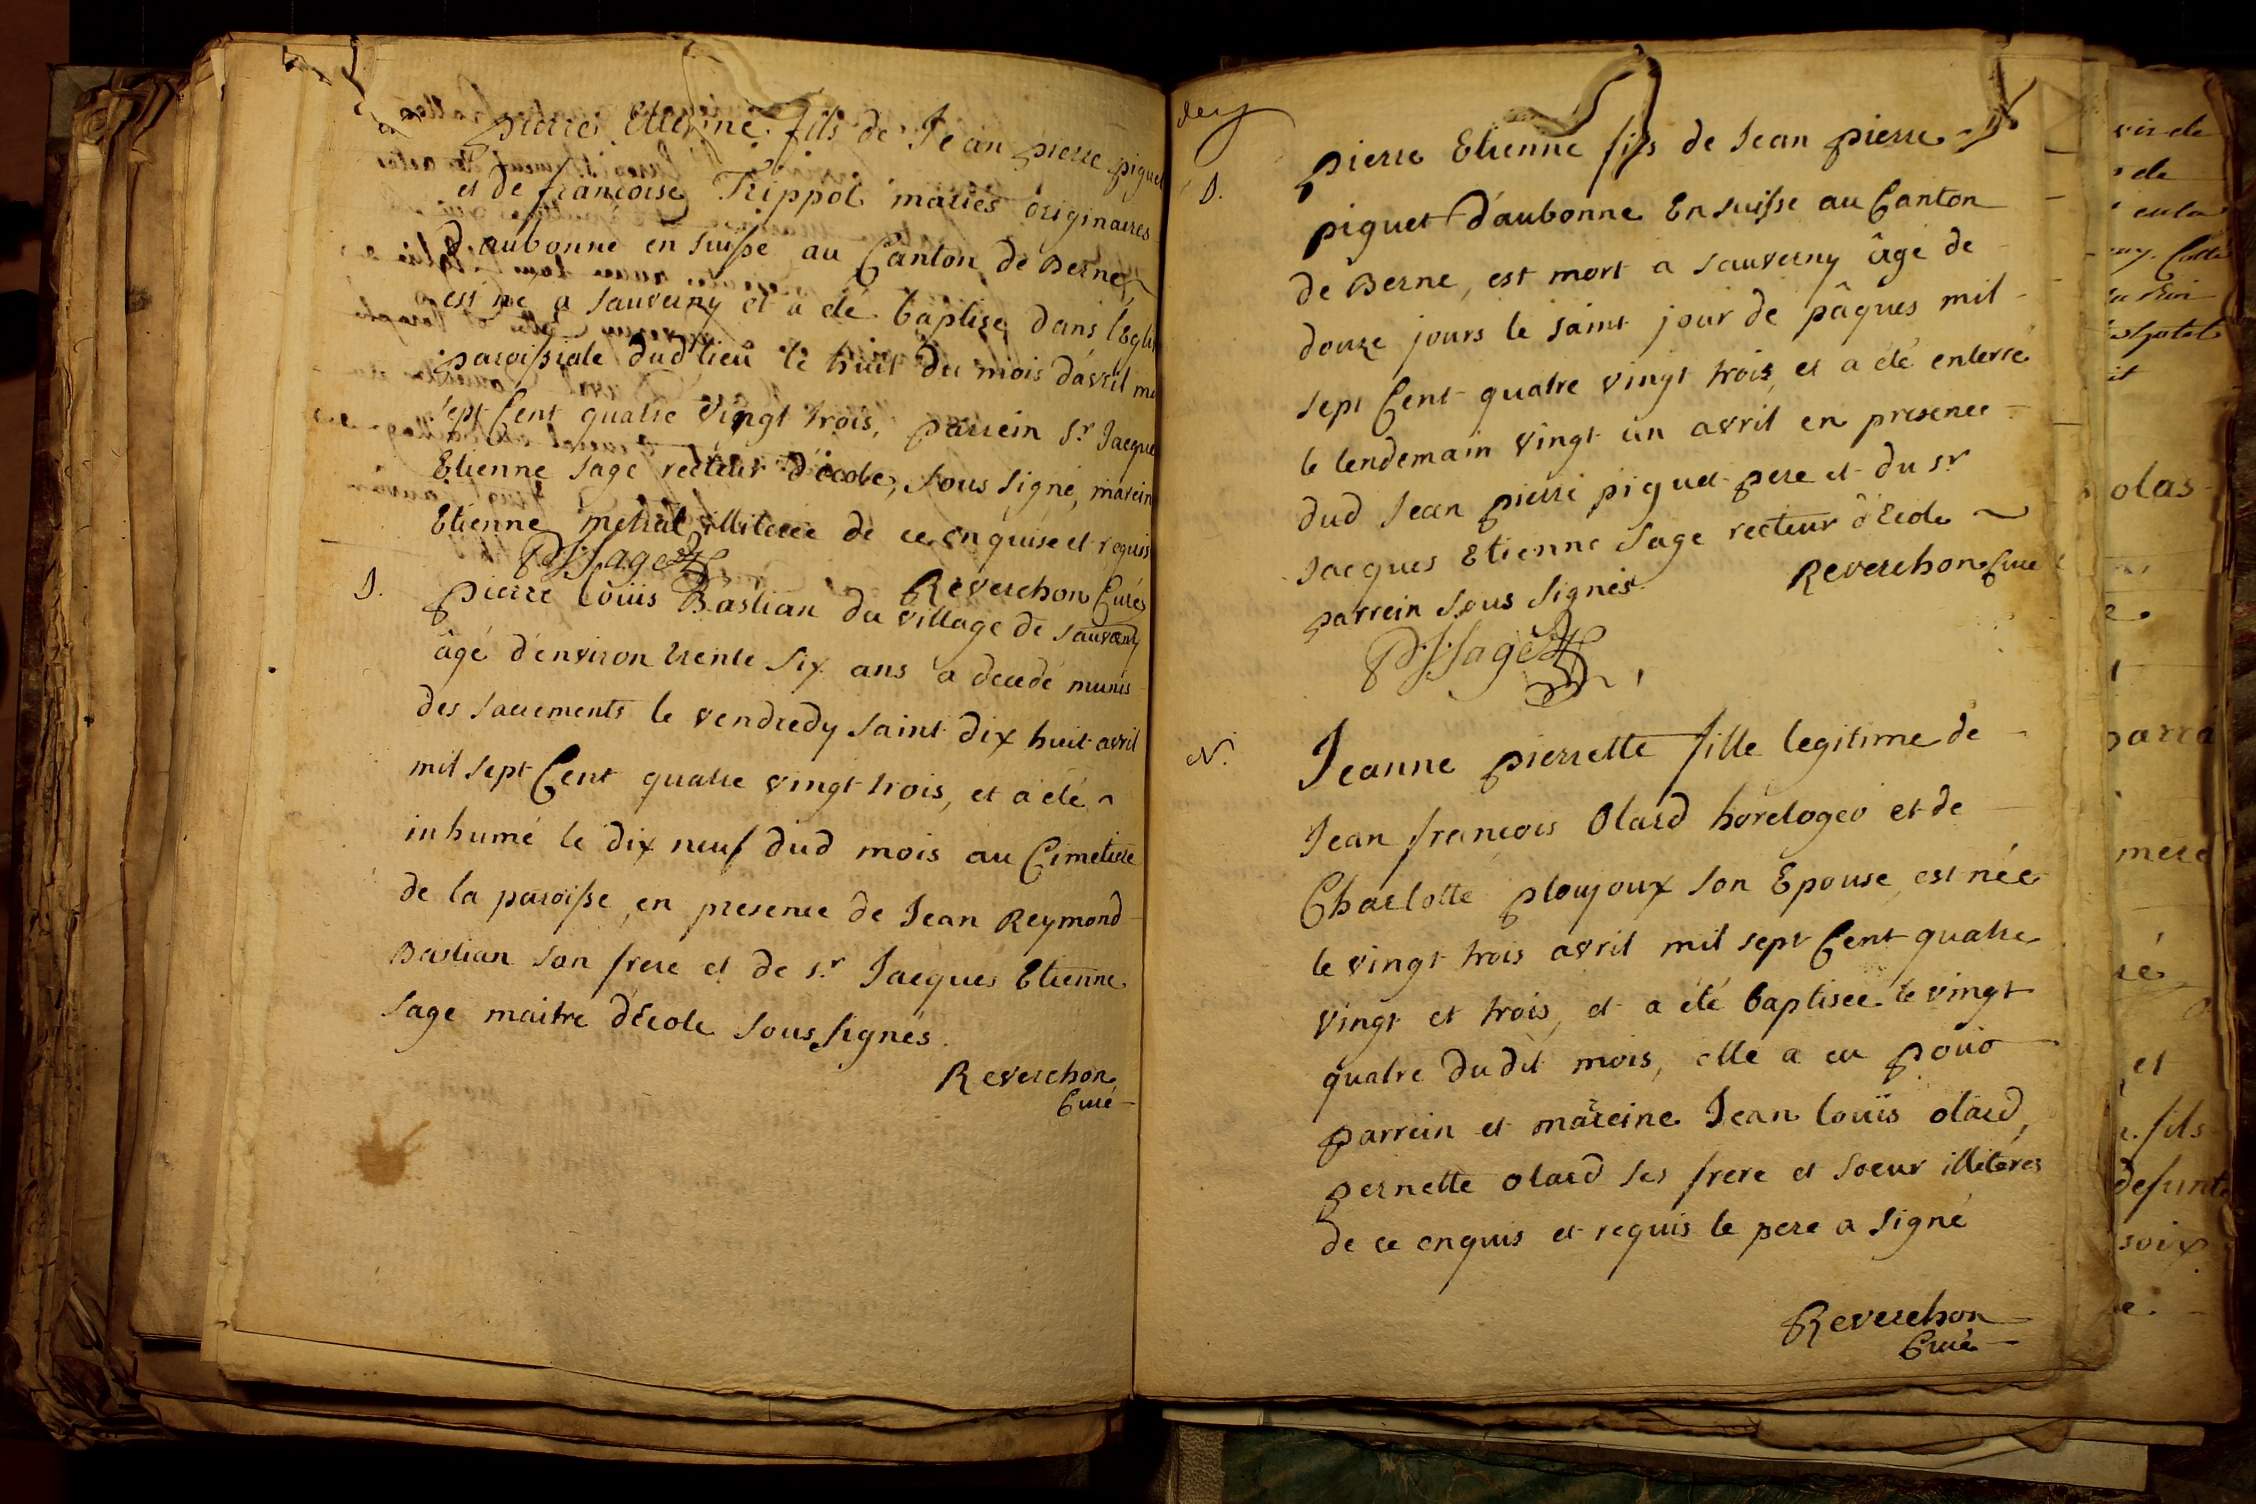 pierre Etienne fils de Jean pierre piguet
et de françoise Trippot mariés originaires
d'aubonne en suisse au Canton de Berne
est né a sauverny et a été baptisé dans l'Eglise
paroissiale dud lieu le huit du mois d'avril mil
sept Cent quatre vingt trois, parrein Sr Jacques
Etienne Sage recteur d'école, sous signé, mareine
Etienne illiterée de ce enquise et requise
Sage
Reverchon Curé
D.
pierre Louis Bastian du village de sauverny
âgé d'environ trente six ans a decedé munis
des sacrements le vendredy saint dix huit avril
mil sept Cent quatre vingt trois, et a été
inhumé le dix neuf dud mois au Cimetiere
de la paroisse, en presence de Jean Reymond
Bastian son frere et de Sr Jacques Etienne
Sage maitre d'Ecole sous signés.
Reverchon
Curé
D.
pierre Etienne fils de Jean pierre
piguet d'aubonne En suisse au Canton
de Berne, est mort a sauverny âgé de
douze jours le saint jour de pâques mil
sept Cent quatre vingt trois, et a été enterré
le lendemain vingt un avril en presence
dud Jean pierre piguet pere et du Sr
Jacques Etienne Sage recteur d'Ecole
parrein sous signés
Reverchon Curé
Sage
N.
Jeanne pierrette fille legitime de
Jean francois Olard horeloger et de
Charlotte ploujoux son Epouse, est née
le vingt trois avril mil sept Cent quatre
vingt et trois, et a été baptisée le vingt
quatre dudit mois, elle a eu pour
parrein et mareine Jean louis olard,
pernette olard ses frere et soeur illiterés
de ce enquis et requis le pere a signé
Reverchon
Curé